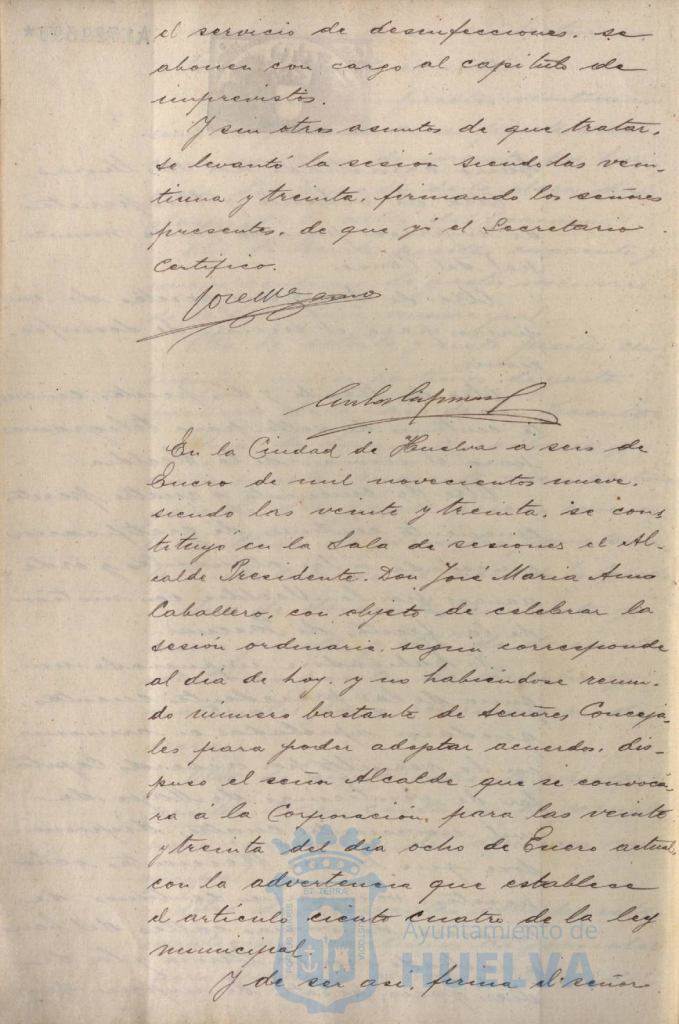 el servicio de desinfecciones, se
abonen con cargo al capítulo de
imprevistos.
Y sin otros asuntos de que tratar,
se levantó la sesión siendo las vein-
tiuna y treinta, firmando los señores
presentes, de que yo el Secretario
certifico.
En la Ciudad de Huelva a seis de
Enero de mil novecientos nueve,
siendo las veinte y treinta, se cons-
tituyó en la Sala de sesiones el Al-
calde Presidente, Don José Maria
Caballero, con objeto de celebrar la
sesión ordinaria, según corresponde
al día de hoy, y no habiéndose reuni-
do número bastante de señores Conceja-
les para poder adoptar acuerdos, dis-
puso el señor Alcalde que se convocá-
ra á la Corporación, para las veinte
y treinta del día ocho de Enero actual,
con la advertencia que establece
el artículo ciento cuatro de la ley
municipal.
Y de ser así, firma el señor
Ayuntamiento de
HUELVA